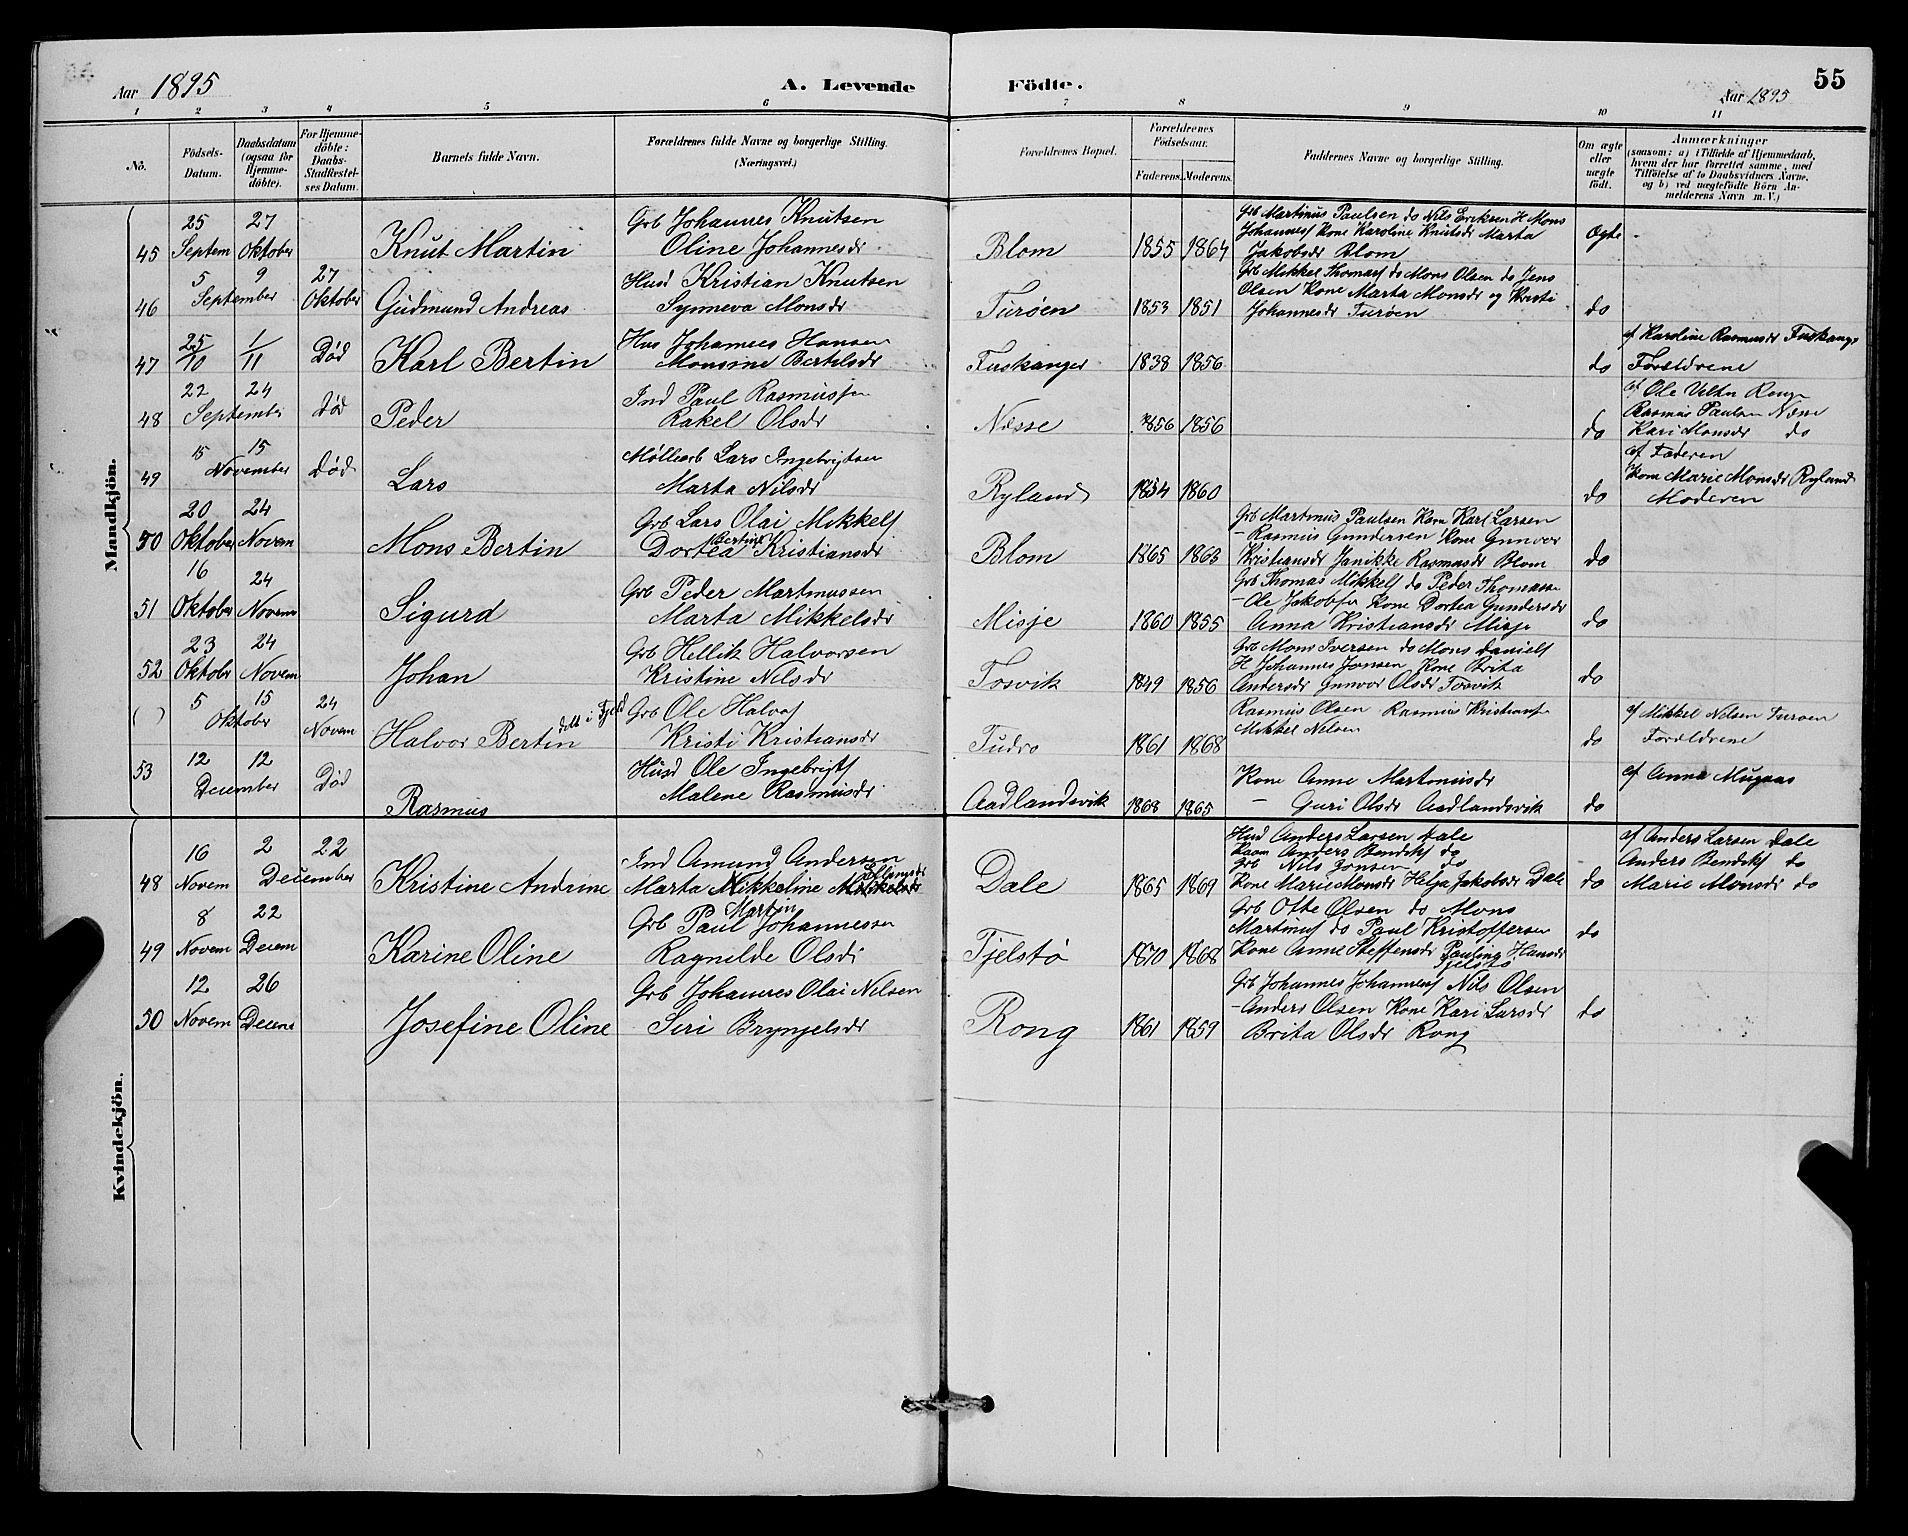 Aar 1895
A. Levende
Födte.
Aar 1895
55
1 2 3 4 5 6 7 8 9 10 11
No.
Födsels-Datum.
Daabsdatum (ogsaa for Hjemme-döbte).
For Hjemme-döbte: Daabs-Stadfæstel-ses Datum.
Barnets fulde Navn.
Forældrenes fulde Navne og borgerlige Stilling. (Næringsvei.)
Forældrenes Bopæl.
Forældrenes Födselsaar.
Faderens. Moderens.
Faddernes Navne og borgerlige Stilling.
Om ægte eller uægte födt.
Anmærkninger
(saasom: a) i Tilfælde af Hjemmedaab,
hvem der har forrettet samme, med
Tilföielse af to Daabsvidners Navne,
og b) ved uægtefödte Börn An-
melderens Navn m. V.)
Mandkjön.
45
25 Septem
27 Oktober
Knut Martin
Grb Johannes Knutsen
Oline Johannesdr
Blom
1855 1864
Grb Martinus Paulsen do Nils Eriksen H Mons
Johannesf Kone Karoline Knutsdr Marta
Jakobsdr Blom
Ægte
46
5 9 September
27 Oktober
Gudmund Andreas
Husd Kristian Knutsen
Synneva Monsdr
Turøen
1853 1851
Grb Mikkel Thomasf do Mons Olsen do Jens
Olsen Kone Marta Monsdr og Kristi
Johannesdr Turøen
do
47
25/10
1/11
Død
Karl Bertin
Hus Johannes Hansen
Monsine Bertelsdr
Fuskanger
1838 1856
do
af Karoline Rasmusdr Fuskanger
Forældrene
48
22 24 September
Død
Peder
Ind Paul Rasmussen
Rakel Olsdr
Næsse
1856 1856
do
af Ole Rong
Rasmus Paulsen Næsse
Kari Monsdr do
49
15 15 November
Død
Lars
Møllearb Lars Ingebrigtsen
Marta Nilsdr
Ryland
1854 1860
do
af Faderen
Kone Marie Monsdr Ryland
Moderen
50
20 Oktober
24 Novem
Mons Bertin
Grb Lars Olai Mikkelf
Dortea Bertine Kristiansdr
Blom
1865 1863
Grb Martinus Paulsen Karl Larsen
- Rasmus Gundersen Kone Gunvor
Kristiansdr Janikke Rasmusdr Blom
do
51
16 Oktober
24 Novem
Sigurd
Grb Peder Martinussen
Marta Mikkelsdr
Misje
1860 1855
Grb Thomas Mikkelf do Peder Thomassen
- Ole Jakobsen Kone Dortea Gundersdr
Anna Kristiansdr Misje
do
52
23 Oktobr
24 Novem
Johan
Grb Hellik Halvorsen
Kristine Nilsdr
Tosvik
1849 1856
Grb Mons Iversen do Mons Danielf
H Johannes Jonsen Kone Brita
Andersdr Gunvor Olsdr Tosvik
do
( )
5 15 Oktober
24 Novem
Halvor Bertin døbt i Fjeld
Grb Ole Halvof
Kristi Kristiansdr
1861 1868
Rasmus Olsen Rasmus Kristiansen
Mikkel Nilsen
do
af Mikkel Nilsen Turøen
Forældrene
53
12 12 December
Død
Rasmus
Husd Ole Ingebrigtf
Malene Rasmusdr
Aadlandsvik
1868 1865
Kone Anne Martinusdr
- Guri Olsdr Aadlandsvik
do
af Anna Mugaas
Kvindekjön.
48
16 Novem
2 22 December
Kristine Andrine
Ind Amund Andersen
Marta Mikkeline
Dale
1865 1869
Husd Anders Larsen Dale
Anders Bendikf do
Grb Nils Jonsen do
Kone Marie Monsdr Helga Jakobsdr Dale
do
af Anders Larsen Dale
Anders Bendikf do
Marie Monsdr do
49
8 Novem
22 Decem
Karine Oline
Grb Paul Martin Johannessen
Ragnilde Olsdr
Tjelstø
1870 1868
Grb Otte Olsen do Mons
Martinusf do Paul Kristoffersen
Kone Anne Steffensdr Pauline Hansdr
Tjelstø
do
50
12 Novem
26 Decem
Josefine Oline
Grb Johannes Olai Nilsen
Siri Brynjelsdr
Rong
1861 1859
Grb Johannes Johannesf Nils Olsen
- Anders Olsen Kone Kari Larsdr
Brita Olsdr Rong
do